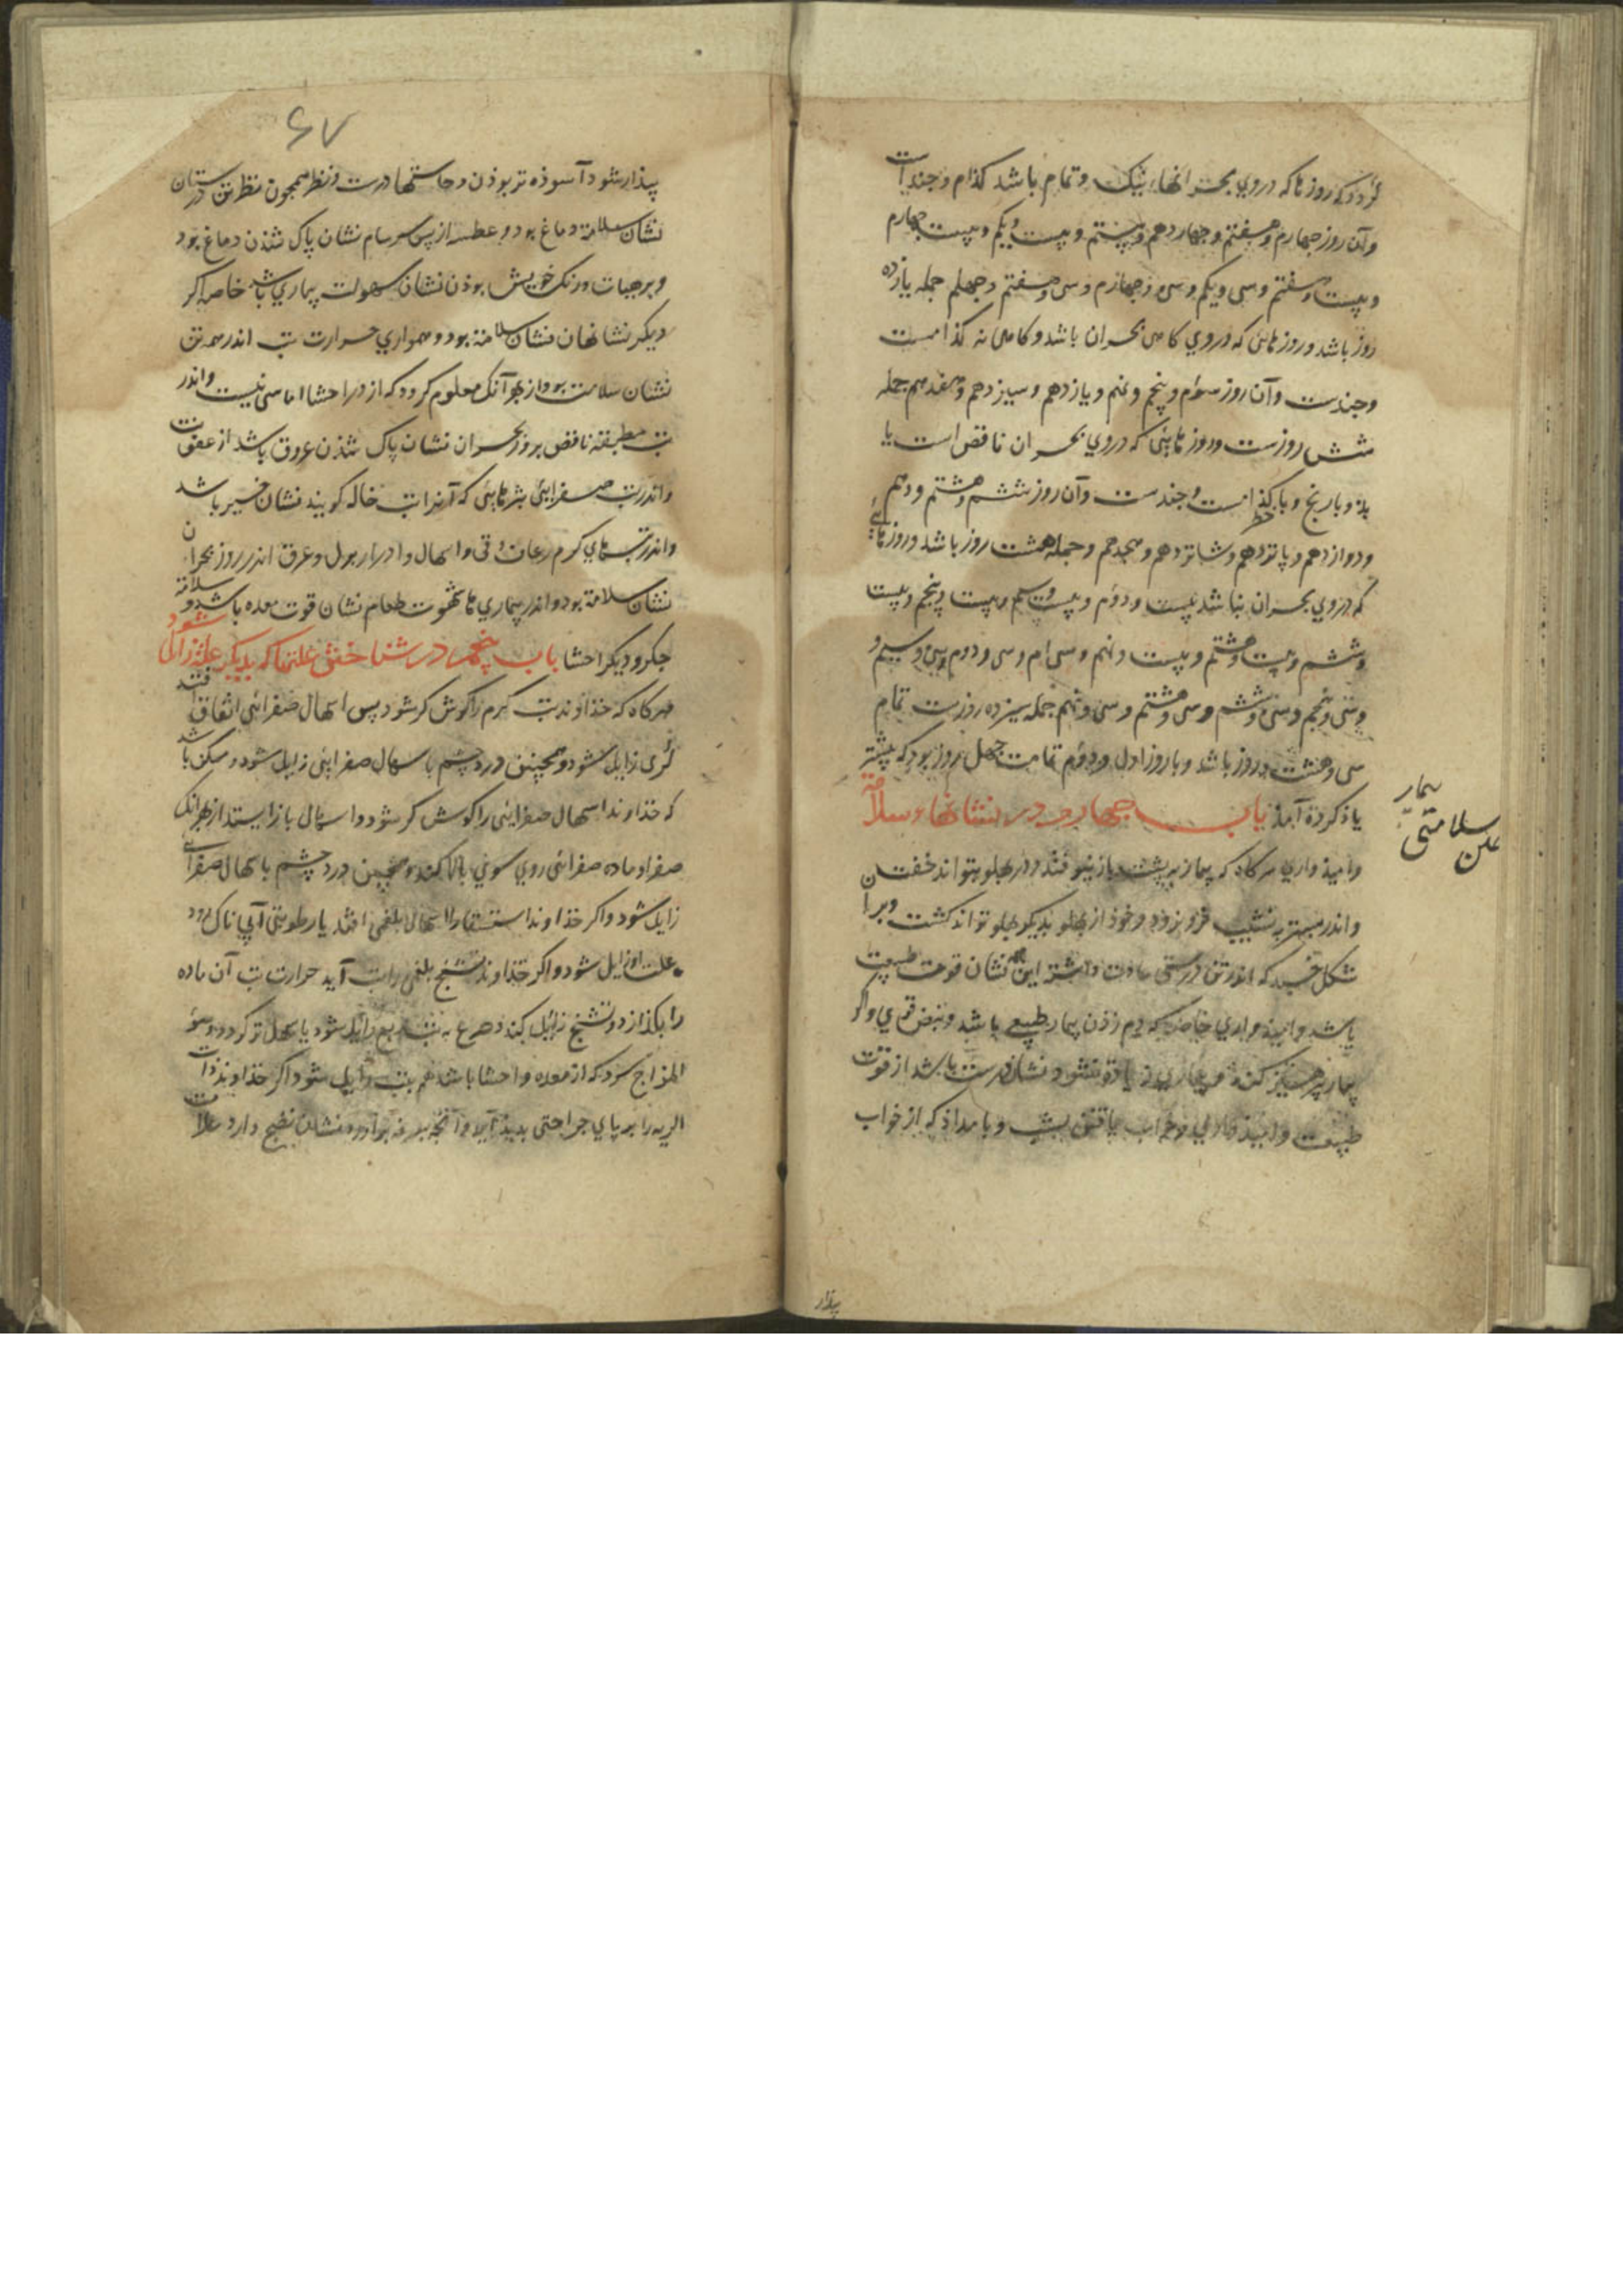 گردد که روزها که دروي بحرانهاء نیک وتمام باشد کذام وچندست
وآن روز چهارم وهفتم وچهاردهم وبیستم وبیست ویکم وبیست چهارم
وبیست وهفتم وسی ویکم وسی وچهارم وسی وهفتم وچهلم جمله یازده
روز باشد وروزهائی که دروي کاهی بحران باشد وکاهی نه کذامست
وچندست وآن روز سوم وپنجم ونهم ویازدهم وسیزدهم وهفدهم جمله
شش روزست وروزهایئی که دروي بحران ناقص است یا
بد وبا رنج وبا خطر کذامست وچندست وآن روز ششم وهشتم ودهم
ودوازدهم وپانزدهم وشانزدهم وهجدهم وجمله هشت روز باشد وروزهائی
که دروي بحران نباشد بیست ودوم وبیست وسیم وبیست وپنجم وبیست
وششم وبیست وهشتم وبیست ونهم وسی ام وسی ودوم وسی وسیم
وسی وپنجم وسی وششم وسی وهشتم وسی ونهم جمله سیزده روزست تمام
سی وهشت روز باشد وبا روز اول ودوم تمامت چهل روز بود که پیشتر
یاذ کرده آمذ باب چهارم در نشانهاء سلامة
بیمار
سلامتی
علن
وامیذواري هرکاه که بیمار بر پشت باز نیوفتد ودر پهلو بتواند خفتن
واندر بستر بنشیب فرو نرود وخوذ از پهلو بدیکر پهلو تواند کشت وبرآن
شکل خسبد که اندر تن درستی عادت داشته این همه نشان قوت طبیعت
باشد وامیذواري خاصه که دم زذن بیمار طبیعی باشد ونبض قوي واکر
بیمار پرهیز کند وبیماري زیادة نشود نشان درست باشد از قوت
طبیعت وامیذواري وخواب یافتن بشب وبامداذ که از خواب
بیذار
۶۷
بیذار شود آسوذه تر بوذن وحاستها درست ونظر همچون نظر تن درستان
نشان سلامة دماغ بود وعطسه از پس سرسام نشان پاک شذن دماغ بود
وبرجیات ورنک خویش بوذن نشان سهولت بیماري باشد خاصه اکر
دیکر نشانهان نشان سلامة بود وهمواري حرارت تب اندر همه تن
نشان سلامت بود از بهر آنک معلوم کردد که از در احشا اماسی نیست واندر
تب مطبقه نافض بروز بحران نشان پاک شذن عروق باشد از عفونت
واندر تب صفرایئ بثرهایئی که آنرا تب خاله کویند نشان خیر باشد
واندر تبهاي کرم رعاف وقی واسهال وادرار بول وعرق اندر روز بحران
نشان سلامة بود واندر بیماري ها شهوت طعام نشان قوت معده باشد وسلامة
جکر ودیکر احشا باب پنجم در شناختن علتها که بدیکر علت زایل شود
هرکاه که خذاوند تب کرم را کوش کر شود پس اسهال صفرائی اتفاق افتد
کری زایل شود وهمچنین درد چشم باسهال صفرایئ زایل شود وممکن باشد
که خذاوند اسهال صفرایئ را کوش کر شود واسهال باز ایستد از بهر آنک
صفرا وماده صفرائی روي سوي بالا کند وهمچنین درد چشم باسهال صفرائی
زایل شود واکر خذاوند استسقا را اسهال بلغمی افتد یا رطوبتی آبی ناک رود
علت او زایل شود واکر خذاوند تشنج بلغمی را تب آید حرارت تب آن ماده
را بکذازد وتشنج زایل کند وصرع به تب ربع زایل شود یا سهل تر کردد وسوء
المزاج سرد که از معده واحشا باشد هم بتب زایل شود اکر خذاوند ذات
الریه را بر پاي جراحتی بدیذ آید وآنچه بسرفه برآورد نشان نضج دارد علامت